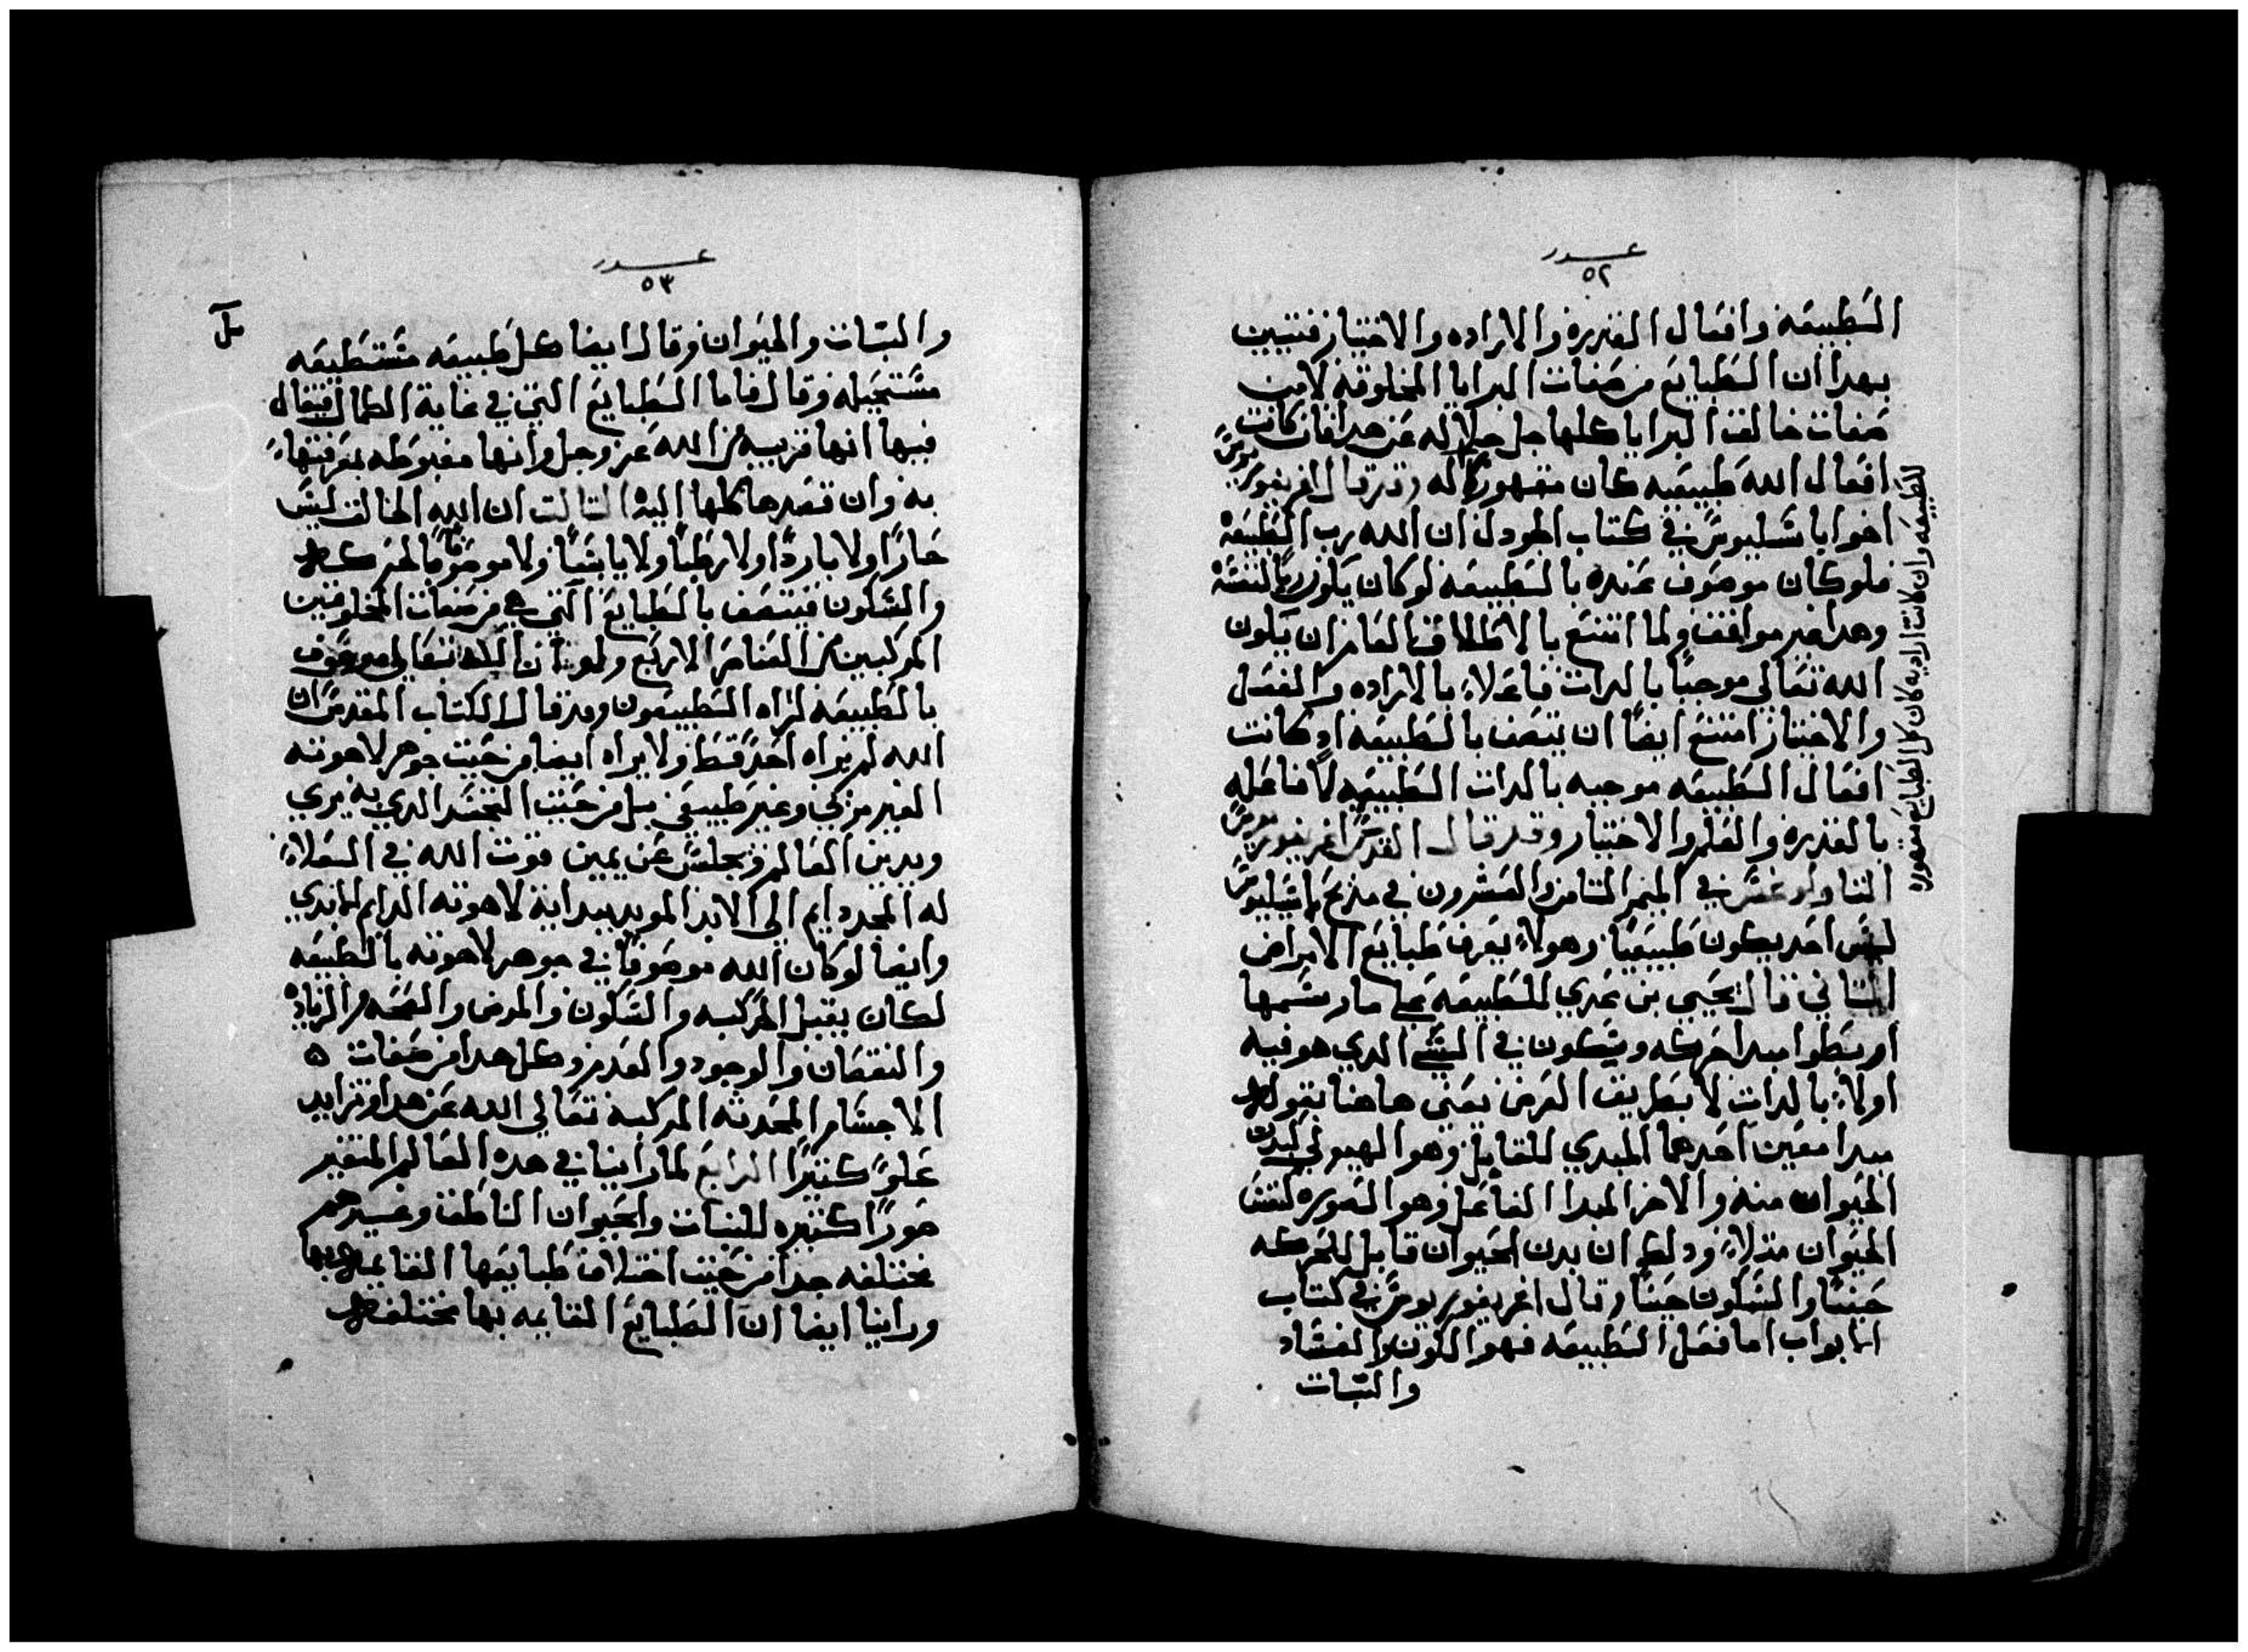 عدد
٥٢
الطبيعه وافعال القدره والاراده والاختيار فتبين
بهدا ان الطبايع من صفات البرايا المخلوقه لا من
صفات خالق البرايا كلها جل جلاله عن هدا فان كانت
افعال الله طبيعيه كان مقهورا له وقد قال اغريغوريوس
اخوا باسليوس في كتاب الجودل ان الله رب الطبيعه
فلو كان موصوف عنده بالطبيعه لو كان يكون ربا لنفسه
وهدا غير موافق ولما امتنع بالاطلاق العام ان يكون
الله تعالي موجبا بالدات فاعلا بالاراده والفعل
والاختيار امتنع ايضا ان يتصف بالطبيعه اد كانت
افعال الطبيعه موجبه بالدات الطبيعيه لا فاعله
بالقدره والعلم والاختيار وقد قال القديس اغريغوريوس
التاولوغس في الميمر التامن والعشرون في مديح باسيليوس
ليس احد يكون طبيعيا وهولا يعرف طبايع الامراض
التاني قال يحيي بن عدي للطبيعه علي ما رسمها
ارسطوا مبدا حركه وسكون في الشي الدي هو فيه
اولا بالدات لا بطريق العرض يعني هاهنا بقوله
مبدا معين احدهما المبدي القابل وهو الهيولي لبدن
الحيوان منه والاخر المبدا الفاعل وهو الصوره لنفس
الحيوان متلا ودلك ان بدن الحيوان قابل للحركه
حينا والسكون حينا وقال اغريغوريوس في كتاب
الابواب اما فعل الطبيعه فهو الكون والفساد
والتبات
الطبيعه وان كانت اراديه كان كل الطبايع مقهوره
عدد
٥٣
والتبات والحيوان وقال ايضا كل طبيعه مستطيعه
مستحيله وقال فاما الطبايع التي في غاية الكمال فيقال
فيها انها قريبه من الله عز وجل وانها مغبوطه بمعرفتها
به وان قصدها كلها اليه التالت ان الله الخالق ليس
حارا ولا باردا ولا رطبا ولا يابسا ولا موصوفا بالحركه
والسكون فيتصف بالطبايع التي هي من صفات المخلوقين
المركبين من العناصر الاربع ولو ان الله تعالي موصوف
بالطبيعه لراه الطبيعيون وقد قال الكتاب المقدس ان
الله لم يراه احد قط ولا يراه ايضا من حيت جوهر لاهوته
الغير مركي وغير طبيعي بل من حيت التجسد الدي به يري
ويدين العالم ويجلس عن يمين قوت الله في العلا
له المجد دايم الي الابد المويد بيداية لاهوته الدايم الابدي
وايضا لو كان الله موصوفا في جوهر لاهوته بالطبيعه
لكان يقبل الحركه والسكون والمرض والصحه والزياده
والنقصان والوجود والعدم وكل هدا من صفات ه
الاجسام المحدته المركبه تعالي الله عن هدا وتزايد
علوا كتيرا الرابع لما راينا في هده العالم المتغير
صورا كتيره للنبات والحيوان الناطق وغيرهم
مختلفه جدا من حيت اختلاف طبايعها القايمه بها
وراينا ايضا ان الطبايع القايمه بها مختلفه